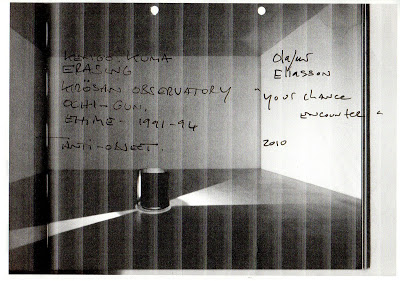 KENGO. KUMA
ERASING
KIRŌSAN OBSERVATORY
OCHI-GUN.
EHIME - 1991-94
ANTI-OBJECT.
Olafur
Eliasson
"your chance
encounter"
2010